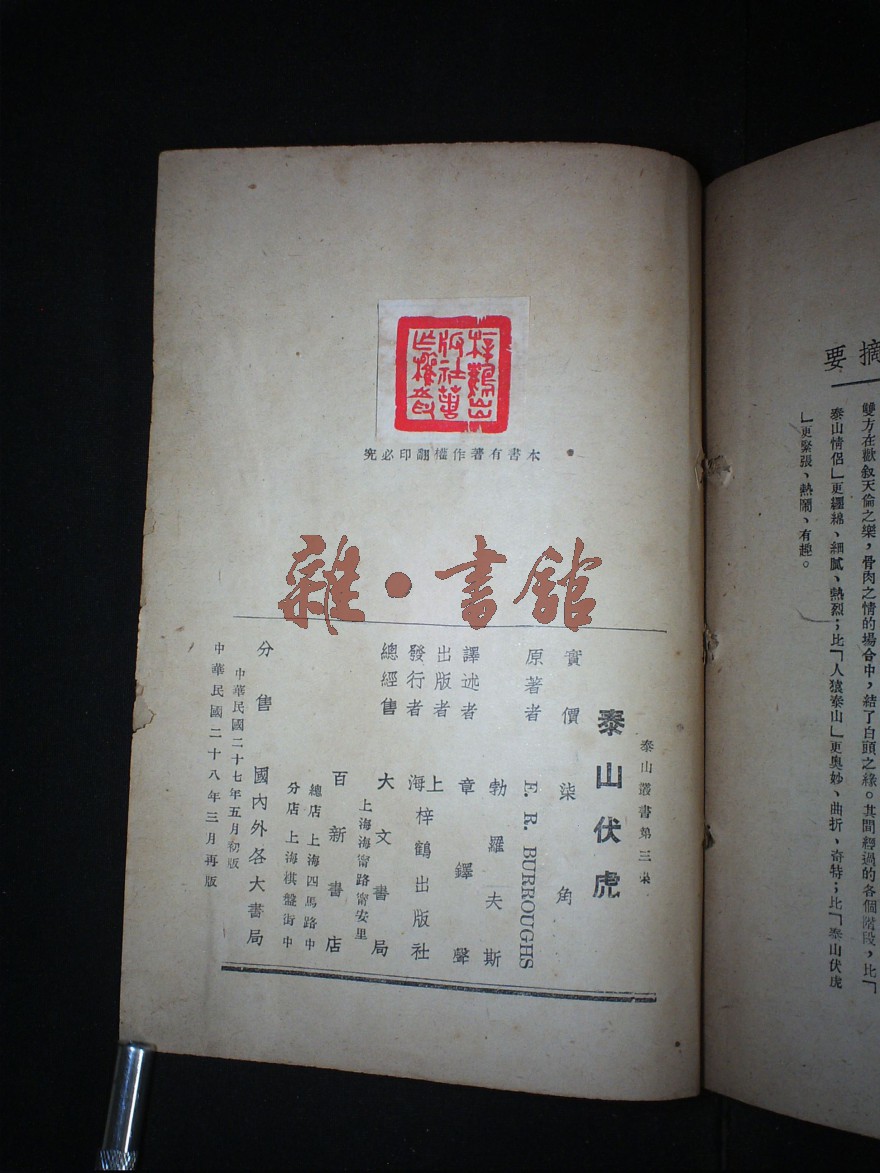 摘要
雙方在歡叙天倫之樂，骨肉之情的場合中，結了白頭之緣。其間經過的各個階段，比「
泰山情侶」更纏綿、細膩、熱烈；比「人猿泰山」更奧妙、曲折、奇特；比「泰山伏虎
」更緊張、熱鬧、有趣。
梓鶴出
版社著
作權章
本書有著作權翻印必究
雜•書館
泰山叢書第三集
泰山伏虎
實價 柒角
原著者 E. R. BURROUGHS
勃羅夫斯
譯述者 章鐸聲
出版者 上
發行者 海梓鶴出版社
總經售 大文書局
上海海甯路甯安里
百新書店
總店 上海四馬路中
分店 上海棋盤街中
分售 國內外各大書局
中華民國二十七年五月初版
中華民國二十八年三月再版